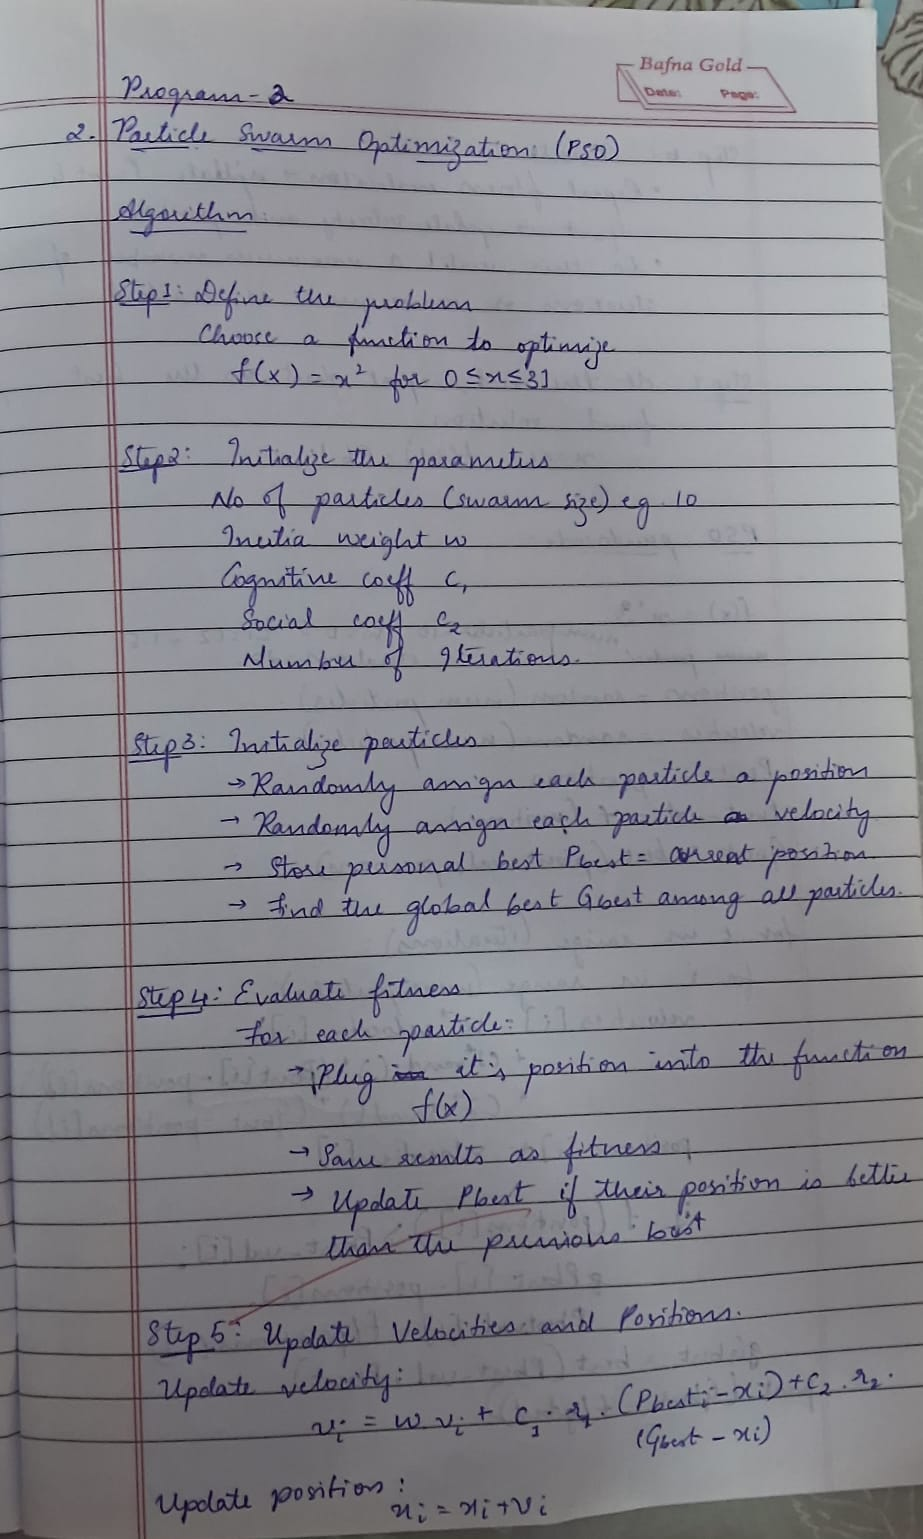 Bafna Gold
Date: Page:
Program-2
2. Particle Swarm Optimization (PSO)
Algorithm
Step1: Define the problem
Choose a function to optimize
f(x) = x² for 0 ≤ x ≤ 31
Step2: Initialize the parameters
No of particles (swarm size) eg 10
Inertia weight w
Cognitive coeff C₁
Social coeff C₂
Number of Iterations.
Step3: Initialize particles
→ Randomly assign each particle a position
→ Randomly assign each particle a velocity
→ Store personal best Pbest = current position
→ find the global best Gbest among all particles.
Step4: Evaluate fitness
For each particle:
→ Plug it's position into the function
f(x)
→ Save results as fitness
→ Update Pbest if their position is better
than the previous best
Step 5: Update Velocities and Positions.
Update velocity:
vᵢ = w vᵢ + C₁ · r₁ · (Pbestᵢ - xᵢ) + C₂ · r₂ ·
(Gbest - xᵢ)
Update position:
xᵢ = xᵢ + vᵢ